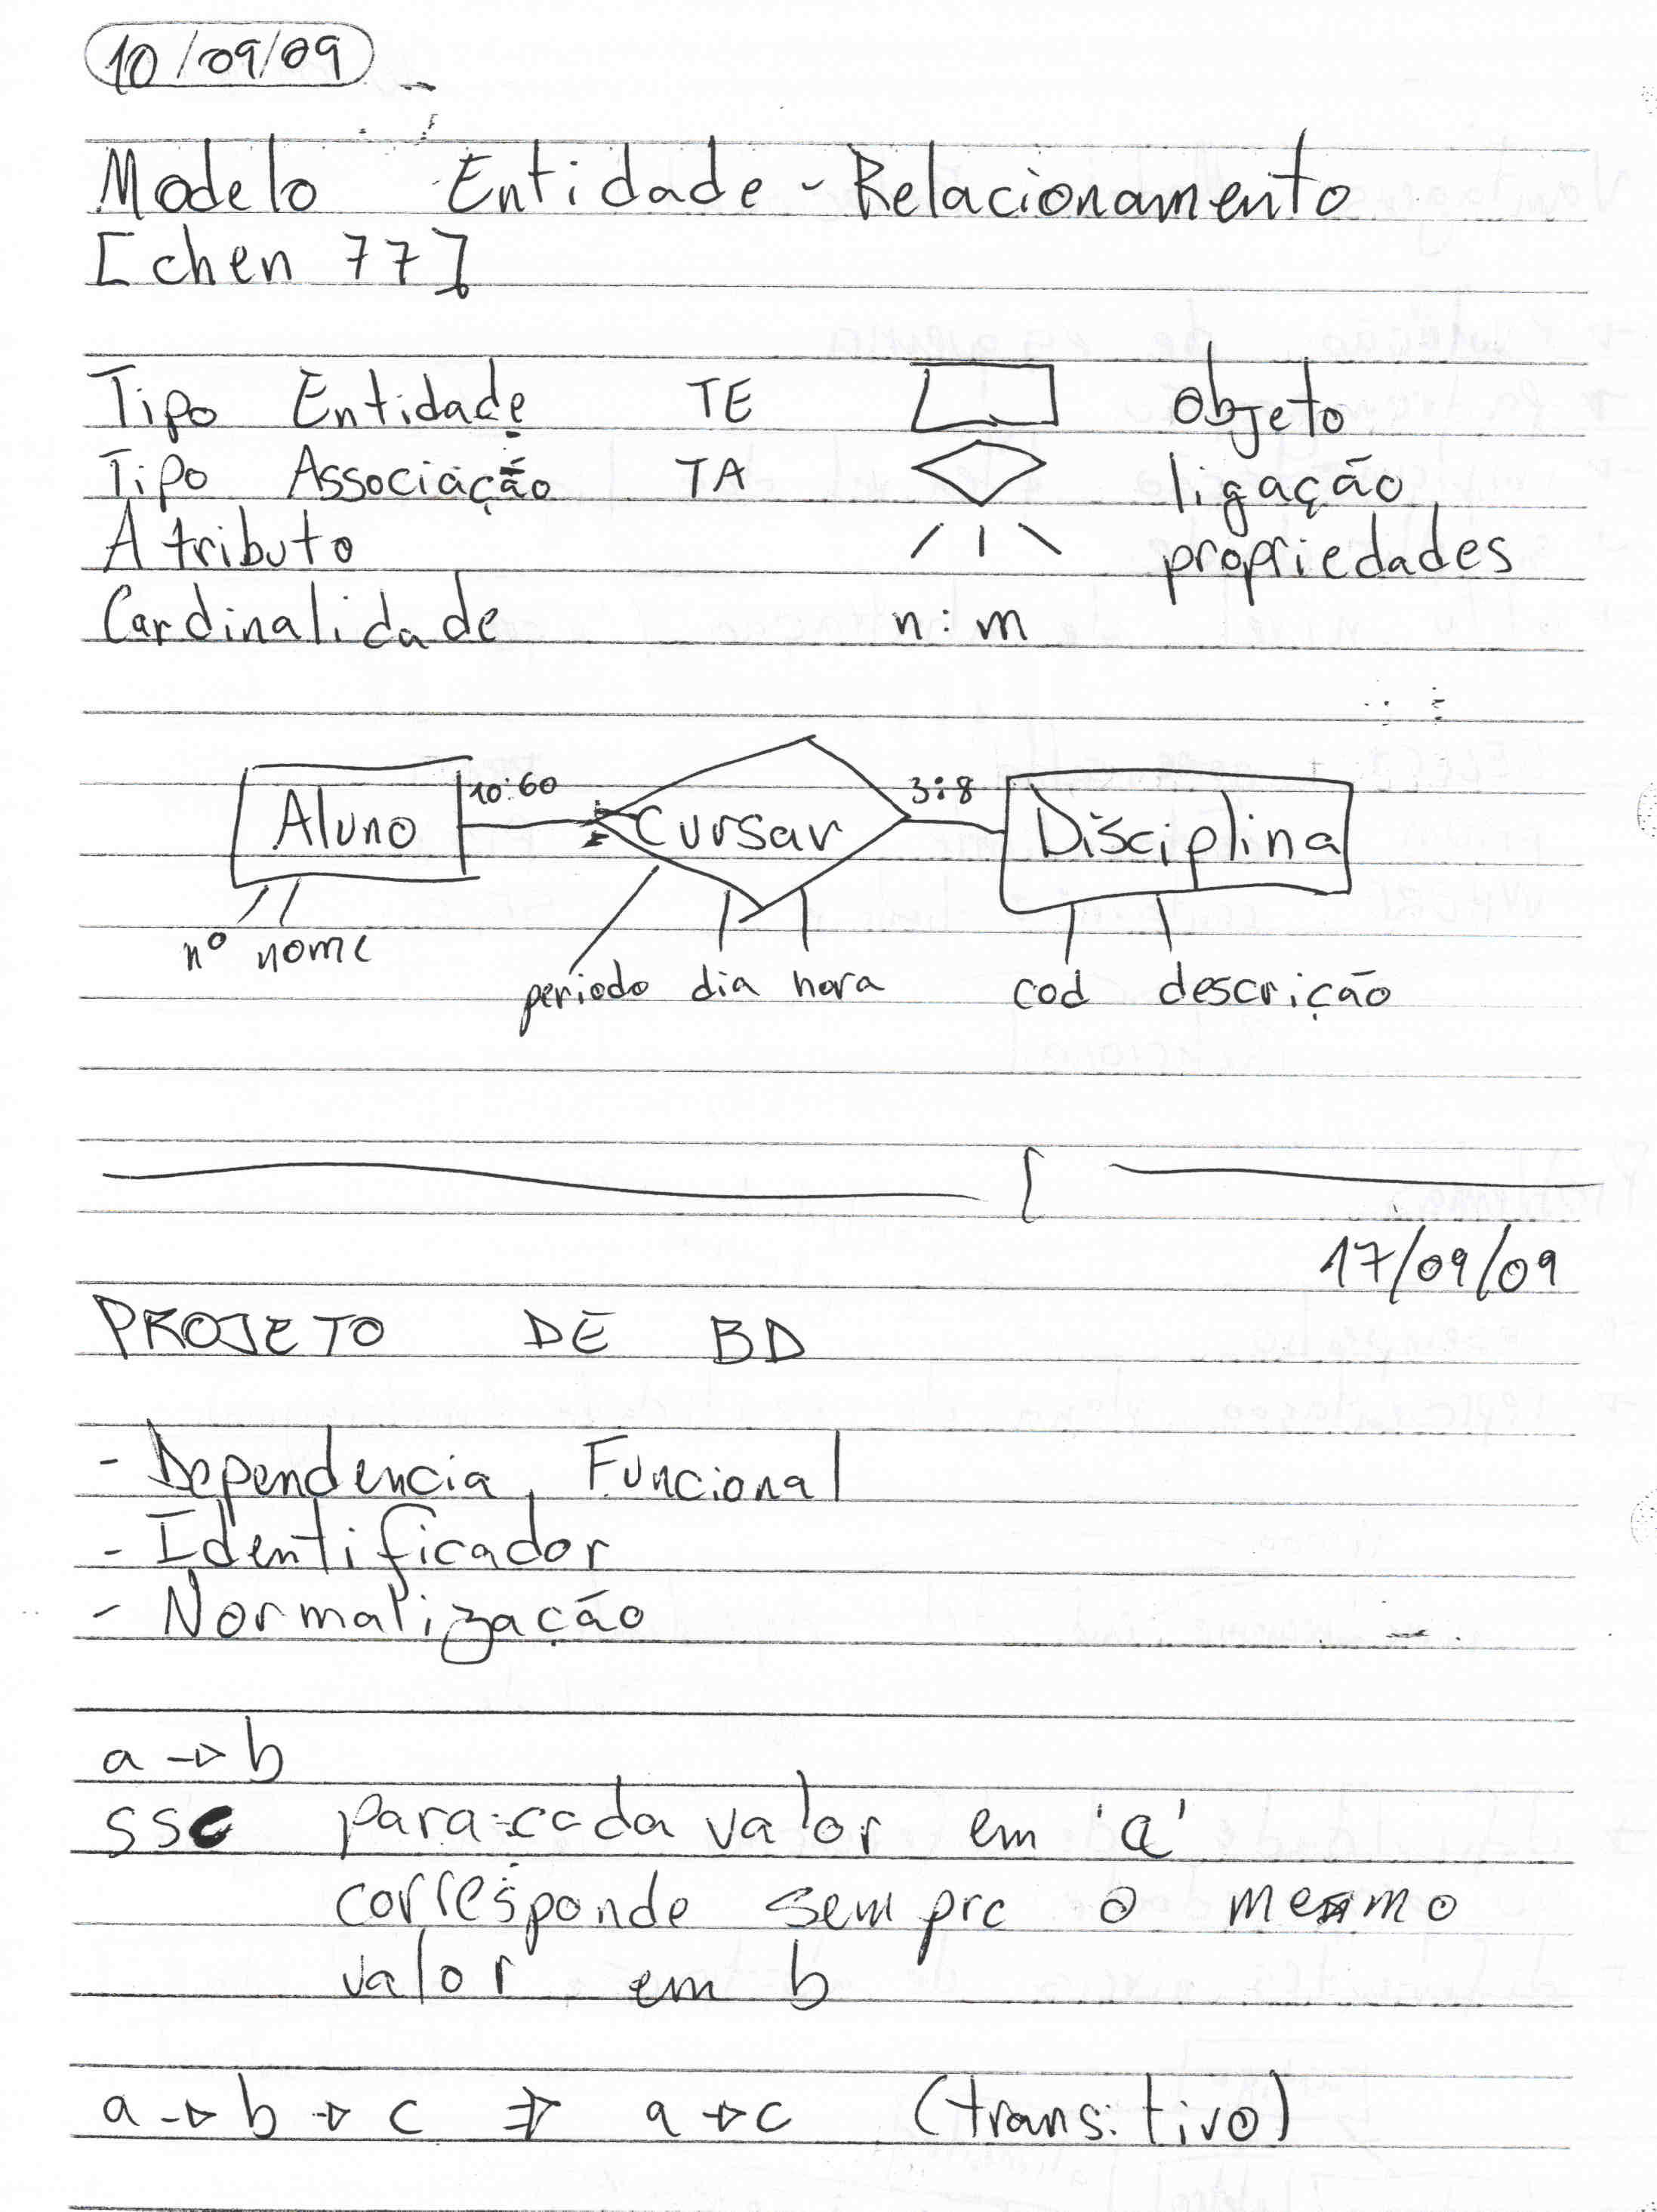 10/09/09
Modelo Entidade-Relacionamento
[chen 77]
Tipo Entidade TE objeto
Tipo Associação TA ligação
Atributo propriedades
Cardinalidade n:m
Aluno 10:60 Cursar 3:8 Disciplina
nº nome
periodo dia hora cod descrição
17/09/09
PROJETO DE BD
- Dependencia Funcional
- Identificador
- Normalização
a → b
sse para cada valor em 'a'
corresponde sempre o mesmo
valor em b
a → b → c ⇒ a → c (transitivo)